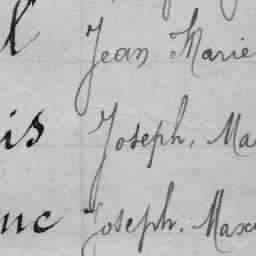 l Jean Marie
is Joseph, Ma
nc Joseph. Max